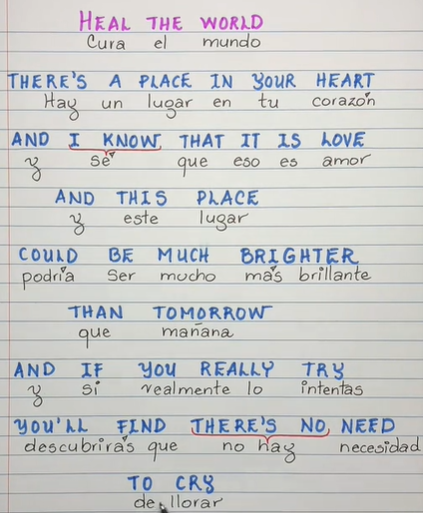 HEAL THE WORLD
Cura el mundo
THERE'S A PLACE IN YOUR HEART
Hay un lugar en tu corazón
AND I KNOW THAT IT IS LOVE
y sé que eso es amor
AND THIS PLACE
y este lugar
COULD BE MUCH BRIGHTER
podría ser mucho más brillante
THAN TOMORROW
que mañana
AND IF YOU REALLY TRY
y si realmente lo intentas
YOU'LL FIND THERE'S NO NEED
descubrirás que no hay necesidad
TO CRY
de llorar